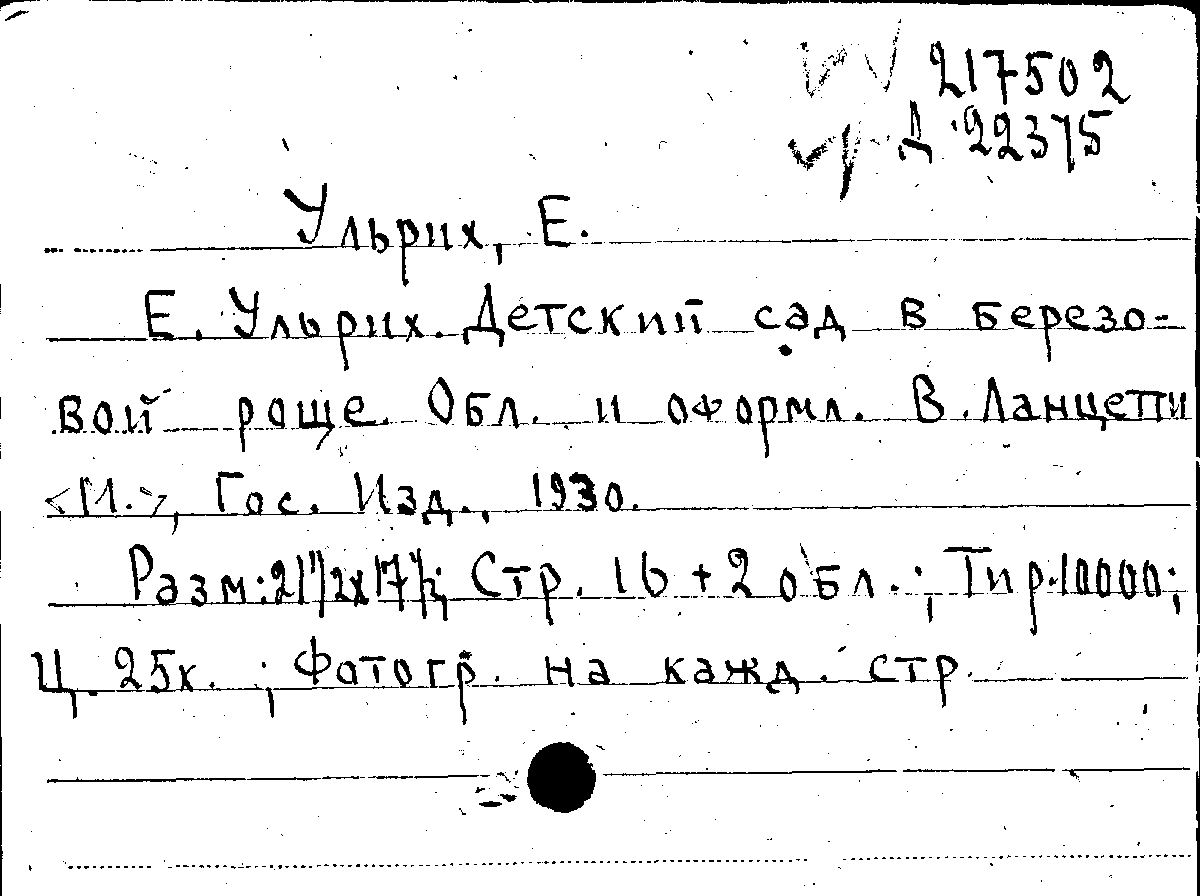 217502
Д 22375
Ульрих, Е.
Е. Ульрих. Детский сад в березо-
вой роще. Обл. и оформл. В. Ланцетти
<М.>, Гос. Изд., 1930.
Разм: 21 1/2 x 17 1/2; Стр. 16 + 2 обл.; Тир. 10000;
Ц. 25к.; Фотогр. на кажд. стр.